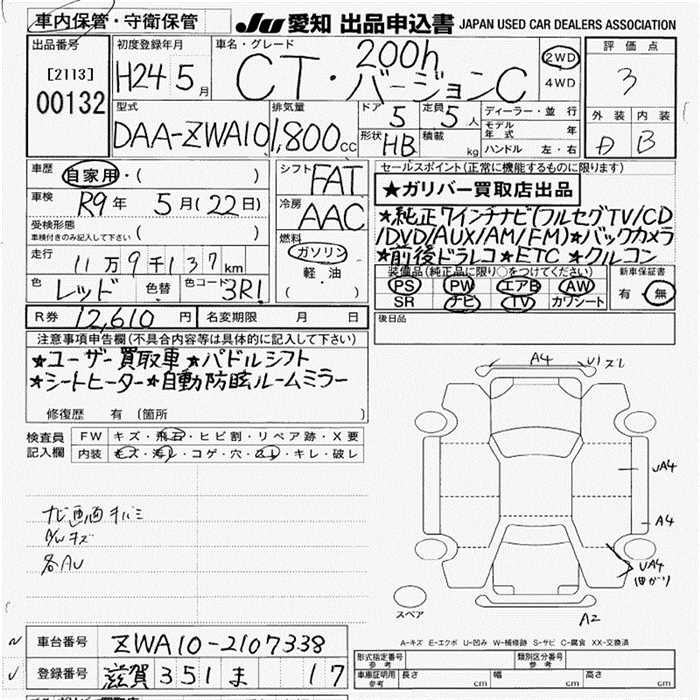 車内保管・守衛保管
JU 愛知 出品申込書 JAPAN USED CAR DEALERS ASSOCIATION
出品番号
[2113]
00132
初度登録年月
H24 5月
車名・グレード
200h
CT・バージョンC
2WD
4WD
評価点
3
外装 内装
B
型式
DAA-ZWA10
排気量
1,800cc
ドア
5
定員
5人
形状
HB
積載
kg
ディーラー・並行
モデル年式 年
ハンドル 左・右
車歴
自家用・( )
車検
R9年 5月(22日)
受検形態
車検付きのみ記入して下さい ( )
走行
11万9千137km
色
レッド
色替
色コード
3R1
シフト
FAT
冷房
AAC
燃料
ガソリン
軽・油
( )
セールスポイント(正常に機能するものに限ります)
★ガリバー買取店出品
★純正7インチナビ(フルセグTV/CD
/DVD/AUX/AM/FM)★バックカメラ
★前後ドラレコ★ETC★クルコン
装備品(純正品に限り○をつけてください)
PS PW エアB AW
SR ナビ TV カワシート
新車保証書
有・無
R券 12,610円
名変期限 月 日
後日品
注意事項申告欄(不具合内容等は具体的に記入して下さい)
★ユーザー買取車★パドルシフト
★シートヒーター★自動防眩ルームミラー
修復歴 有 (箇所 )
検査員記入欄
FW キズ・飛石・ヒビ割・リペア跡・X要
内装 キズ・汚レ・コゲ・穴・スレ・キレ・破レ
ナビ画面キバミ
D/Wキズ
各AU
A4
U1 ズレ
UA4
A4
UA4
曲がり
A2
スペア
A-キズ E-エクボ U-凹み W-補修跡 S-サビ C-腐食 XX-交換済
車台番号 ZWA10-2107338
登録番号 滋賀 351 ま 17
形式指定番号 参考
類別区分番号 参考
車庫証明用 参考
長さ cm
幅 cm
高さ cm